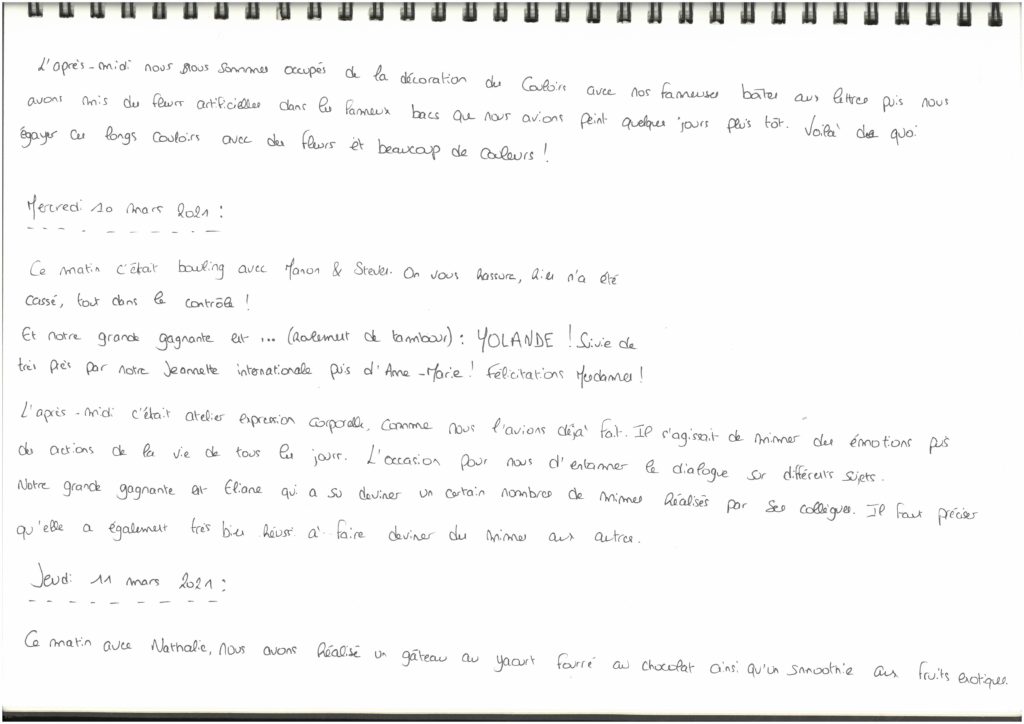 L'après-midi nous nous sommes occupés de la décoration des couloirs avec nos fameuses boîtes aux lettres puis nous
avons mis des fleurs artificielles dans les fameux bacs que nous avions peint quelques jours plus tôt. Voilà de quoi
égayer ces longs couloirs avec des fleurs et beaucoup de couleurs !
Mercredi 10 mars 2021 :
Ce matin c'était bowling avec Manon & Steven. On vous rassure, rien n'a été
cassé, tout dans le contrôle !
Et notre grande gagnante est ... (roulement de tambour) : YOLANDE ! Suivie de
très près par notre Jeannette internationale puis d'Anne-Marie ! Félicitations Mesdames !
L'après-midi c'était atelier expression corporelle, comme nous l'avions déjà fait. Il s'agissait de mimer des émotions puis
des actions de la vie de tous les jours. L'occasion pour nous d'entamer le dialogue sur différents sujets.
Notre grande gagnante est Eliane qui a su deviner un certain nombres de mimes réalisés par ses collègues. Il faut préciser
qu'elle a également très bien réussi à faire deviner des mimes aux autres.
Jeudi 11 mars 2021 :
Ce matin avec Nathalie, nous avons réalisé un gâteau au yaourt fourré au chocolat ainsi qu'un smoothie aux fruits exotiques.